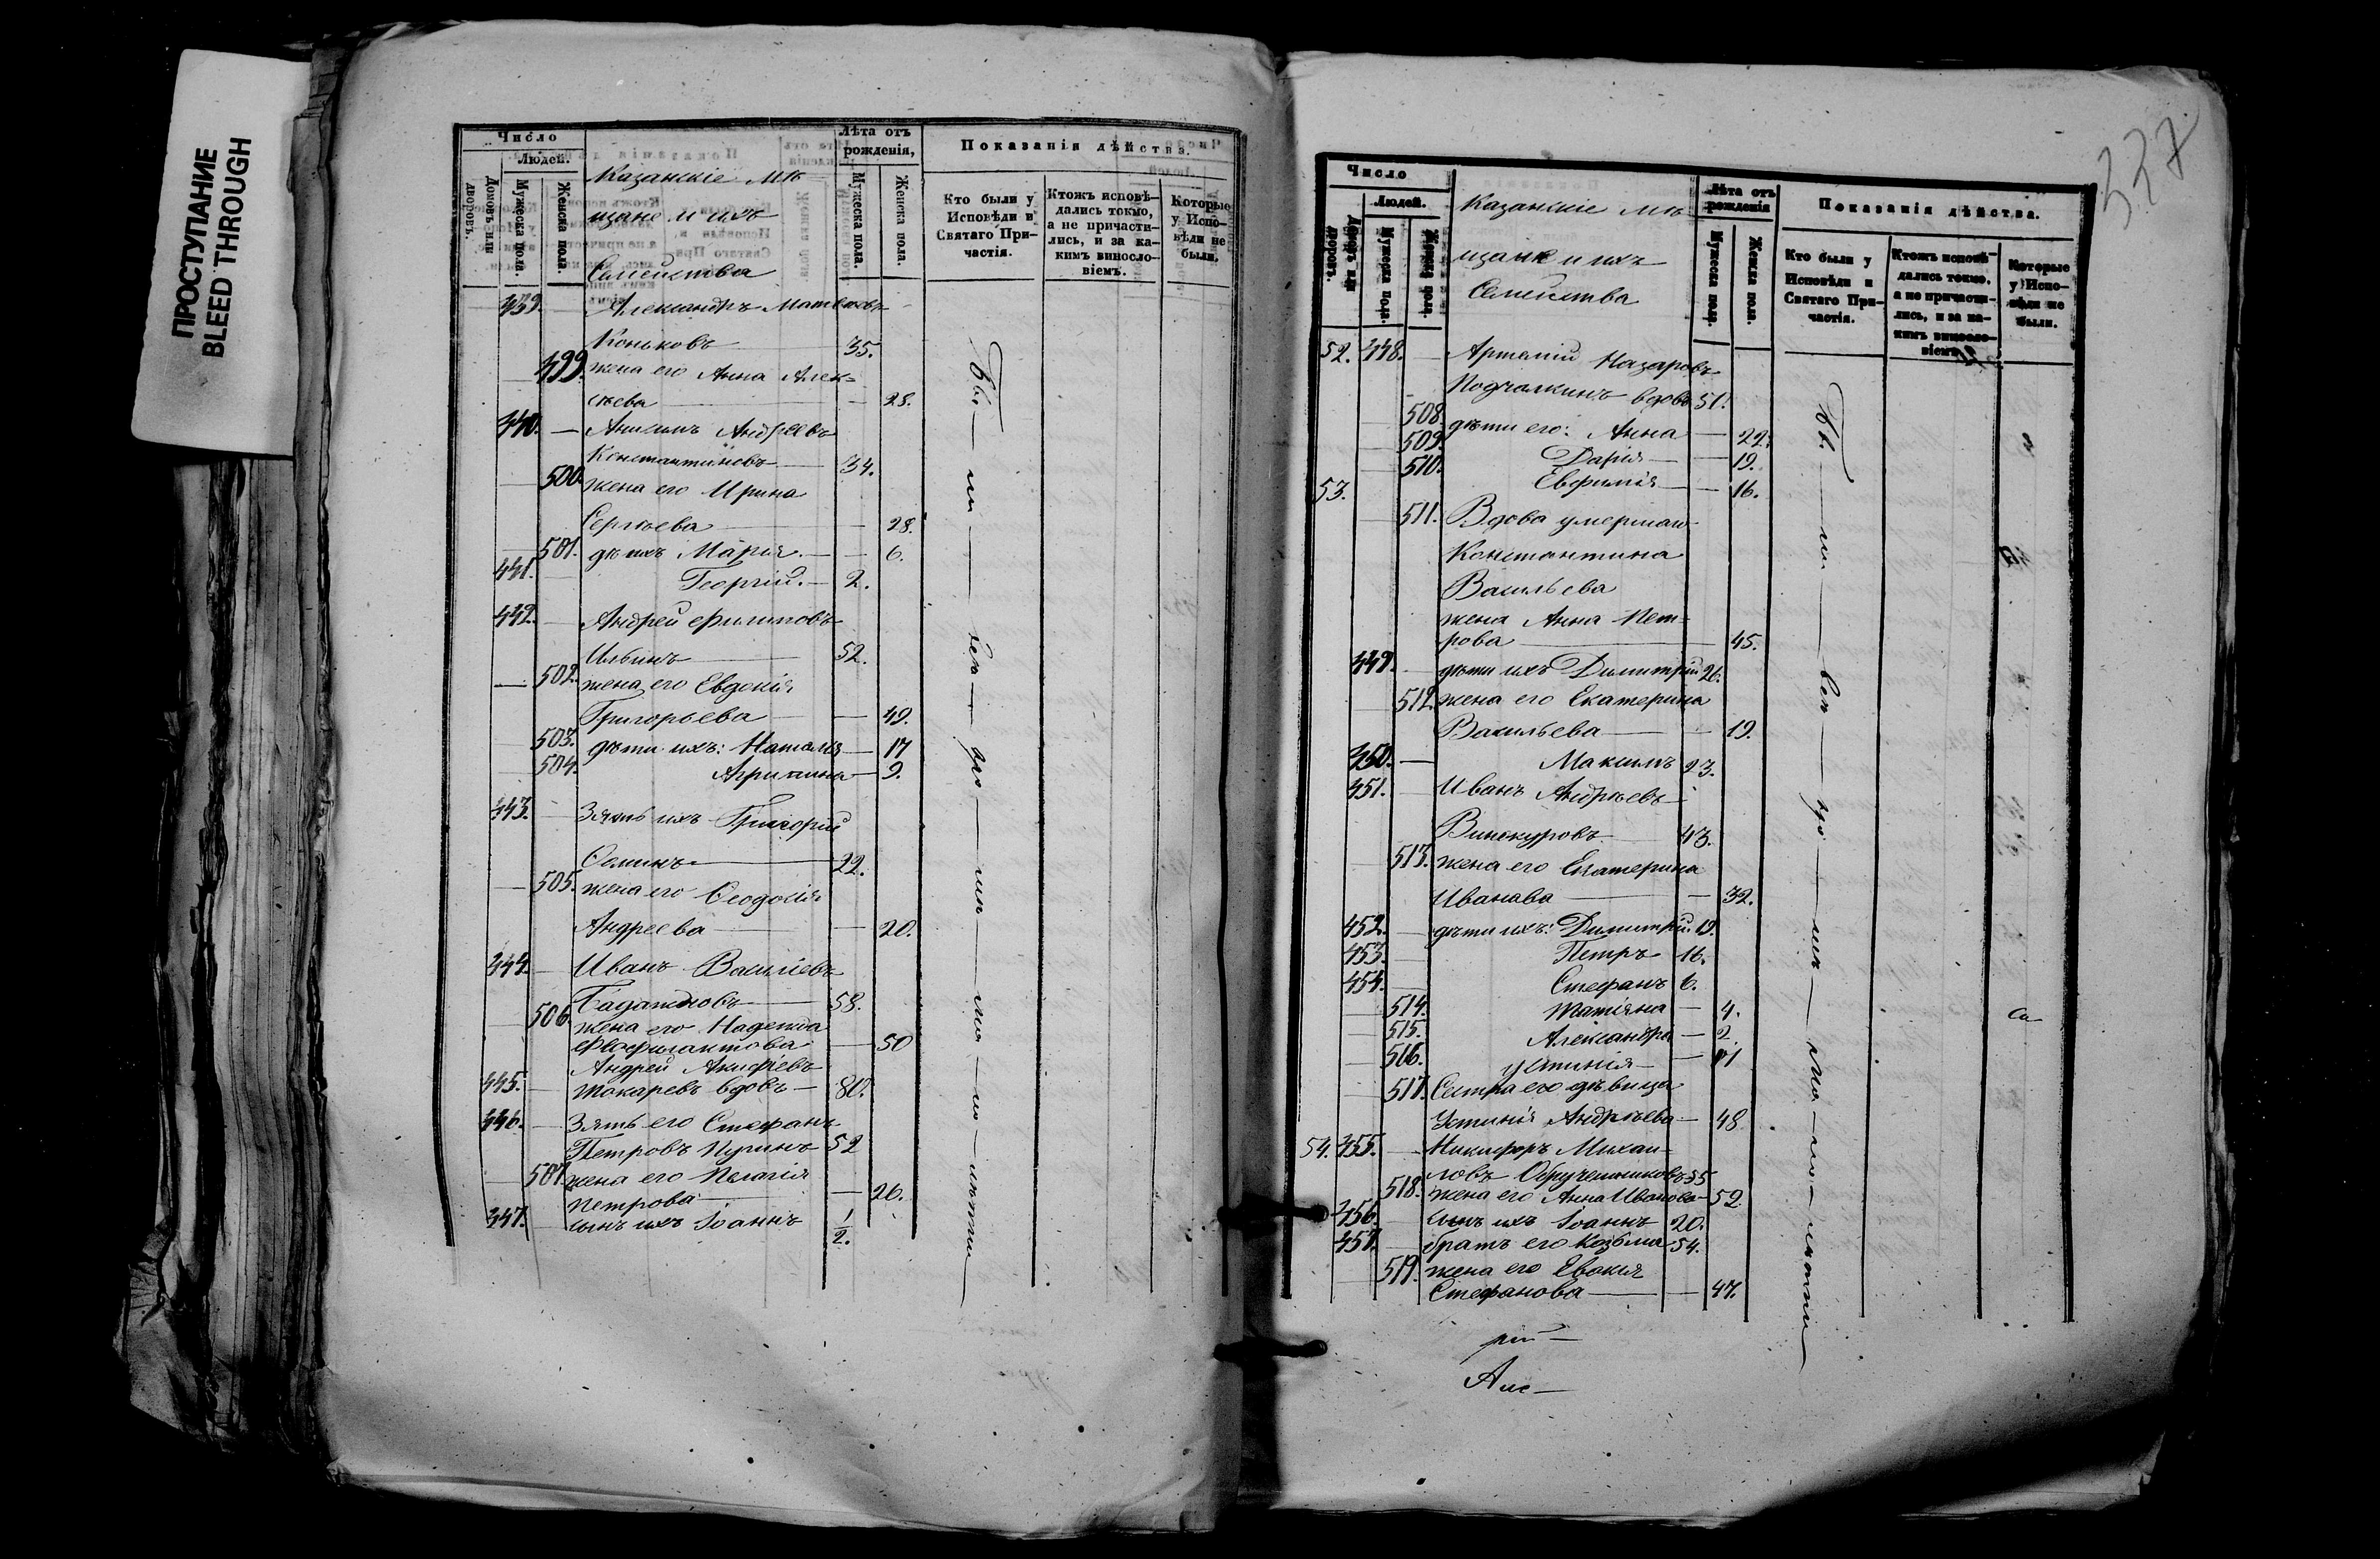 ПРОСТУПАНИЕ
BLEED THROUGH
Число
Людей.
Домовъ или дворовъ.
Мужеска пола.
Женска пола.
Казанскіе мѣ
щане и ихъ
Семейства
Лѣта отъ рожденія,
Мужеска пола.
Женска пола.
Показанія дѣйства.
Кто были у Исповѣди и Святаго Причастія.
Ктожъ исповѣдались токмо, а не причастились, и за какимъ винословіемъ.
Которые у Исповѣди не были.
439. Александръ Матвѣевъ
Коньковъ 35.
499. жена его Анна Алек-
сѣева 28.
440. Анисимъ Андреевъ
Константиновъ 34.
500. жена его Ирина
Сергѣева 28.
501. дѣ ихъ Марія 6.
441. Георгій. 2.
442. Андрей Филиповъ
Ильинъ 52.
502. жена его Евдокія
Григорьева 49.
503. дѣти ихъ: Наталія 17
504. Агрипина 9.
443. Зять ихъ Григорій
22.
505. жена его Ѳеодосія
Андреева 20.
444. Иванъ Василіевъ
58.
506. жена его Надежда
Ѳеофилактова 50
Андрей
445. Токаревъ вдовъ 80.
446. Зять его Стефанъ
Петровъ 52
507. жена его Пелагія
Петрова 26.
447. сынъ ихъ Іоаннъ 1/2.
Бы ли всѣ
337
Число
Людей.
Домовъ или дворовъ.
Мужеска пола.
Женска пола.
Казанскіе мѣ
щане и ихъ
Семейства
Лѣта отъ рожденія
Мужеска пола.
Женска пола.
Показанія дѣйства.
Кто были у Исповѣди и Святаго Причастія.
Ктожъ исповѣдались токмо, а не причастились, и за какимъ винословіемъ.
Которые у Исповѣди не были.
52. 448. Артемій Назаровъ
Подчалкинъ вдовъ 51.
508. дѣти его: Анна 22.
509. Дарія 19.
510. Евфимія 16.
53.
511. Вдова умершаго
Константина
Васильева
жена Анна Пет-
рова 45.
449. дѣти ихъ Димитрій 26.
512. жена его Екатерина
Васильева 19.
450. Максимъ 23.
451. Иванъ Андрѣевъ
Винокуровъ 43.
513. жена его Екатерина
Иванава 39.
452. дѣти ихъ: Димитрій. 19.
453. Петръ 16.
454. Стефанъ 6.
514. Татіяна 4.
515. Александра 2
516. Устинія
517. Сестра его дѣвица
Устинія Андрѣева 48
54. 455. Никифоръ Михаи-
ловъ Обручешниковъ 55
518. жена его Анна Иванова 52
456. сынъ ихъ Іоаннъ 20.
457. братъ его Козьма 54.
519. жена его Евокія
Стефанова 47.
Бы ли всѣ
рій